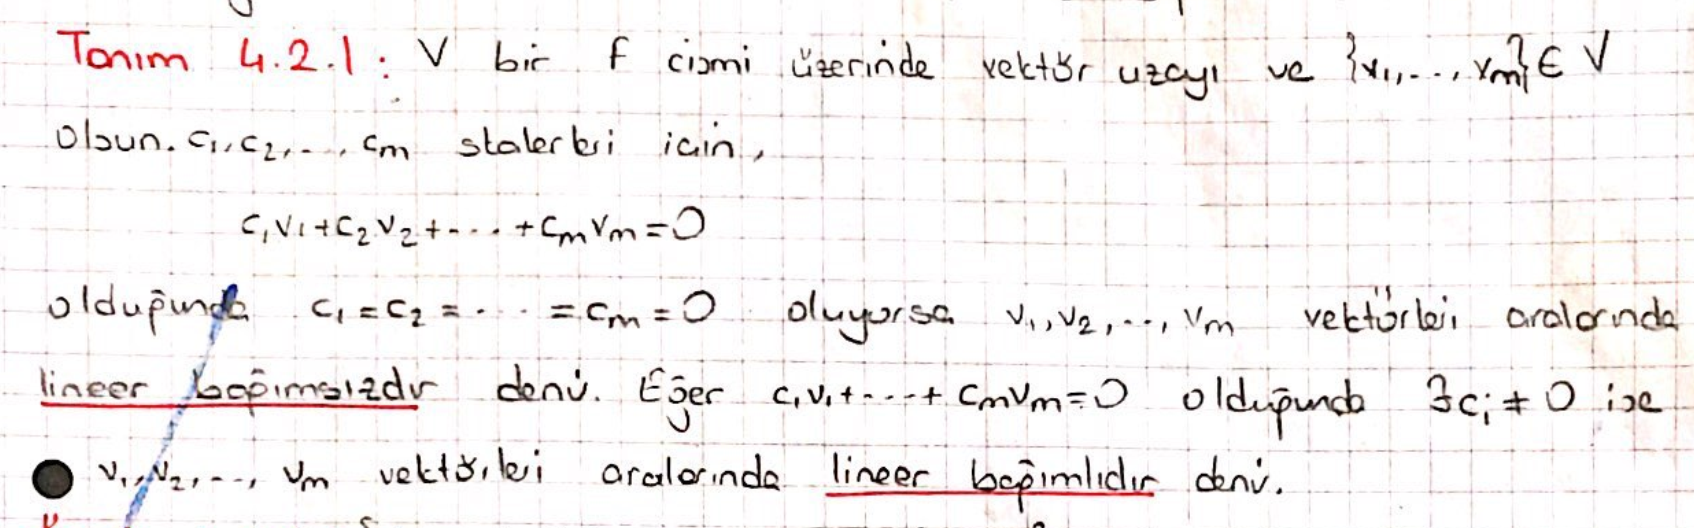 Tanım 4.2.1: V bir F cismi üzerinde vektör uzayı ve {v₁,..., vₘ} ∈ V
olsun. c₁, c₂,..., cₘ skalerleri için,
c₁v₁+c₂v₂+....+cₘvₘ=0
olduğunda c₁=c₂=...=cₘ=0 oluyorsa v₁,v₂,..., vₘ vektörleri aralarında
lineer bağımsızdır denir. Eğer c₁v₁+....+cₘvₘ=0 olduğunda ∃cᵢ≠0 ise
v₁,v₂,..., vₘ vektörleri aralarında lineer bağımlıdır denir.